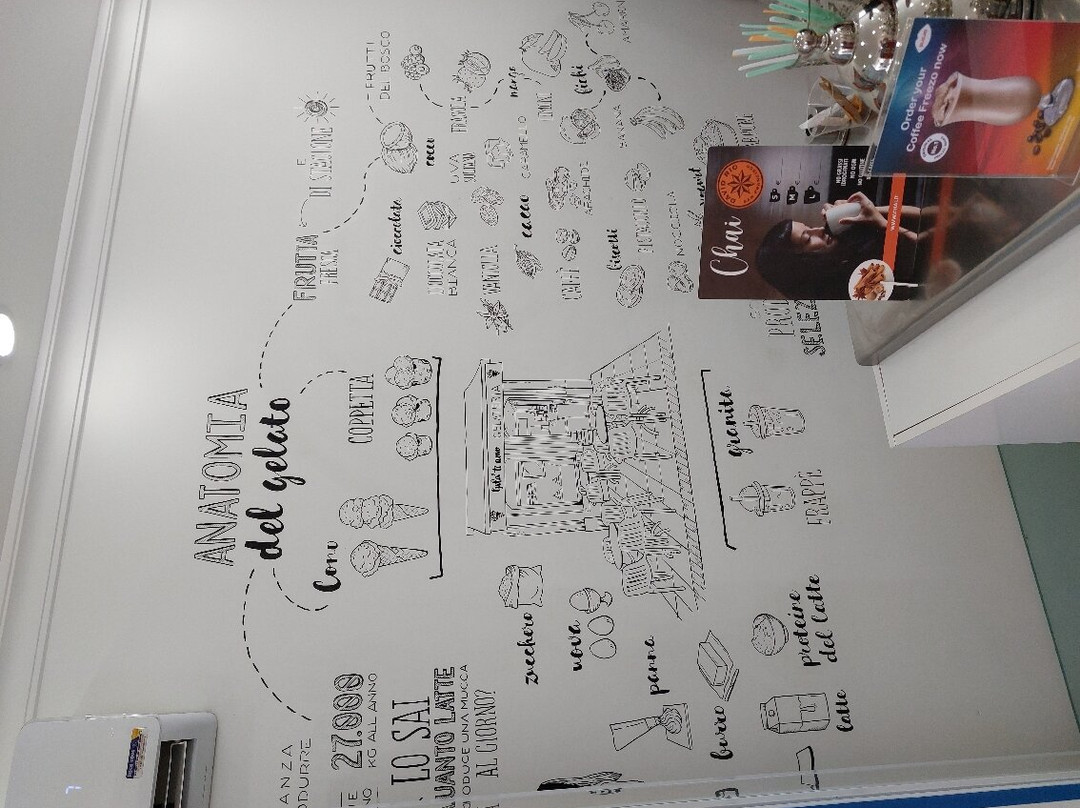 ANATOMIA
del gelato
Coni
COPPETTA
FRUTTA
FRESCA
E
DI STAGIONE
FRUTTI
DEL BOSCO
cocco
FRAGOLA
mango
LIMONE
fichi
AMARENA
UVA
CARAMELLO
BANANA
cioccolato
CIOCCOLATA
BIANCA
VANIGLIA
cacao
ARACHIDE
CAFFÈ
biscotti
PISTACCHIO
NOCCIOLA
GELATERIA
granite
FRAPPÈ
zucchero
uova
panna
burro
proteine
del latte
latte
ANZA
ODURRE
27.000
KG ALL'ANNO
LO SAI
QUANTO LATTE
ODUCE UNA MUCCA
AL GIORNO?
Order your
Coffee Freezo now
DAVID RIO
Chai
S
M
L
€
€
€